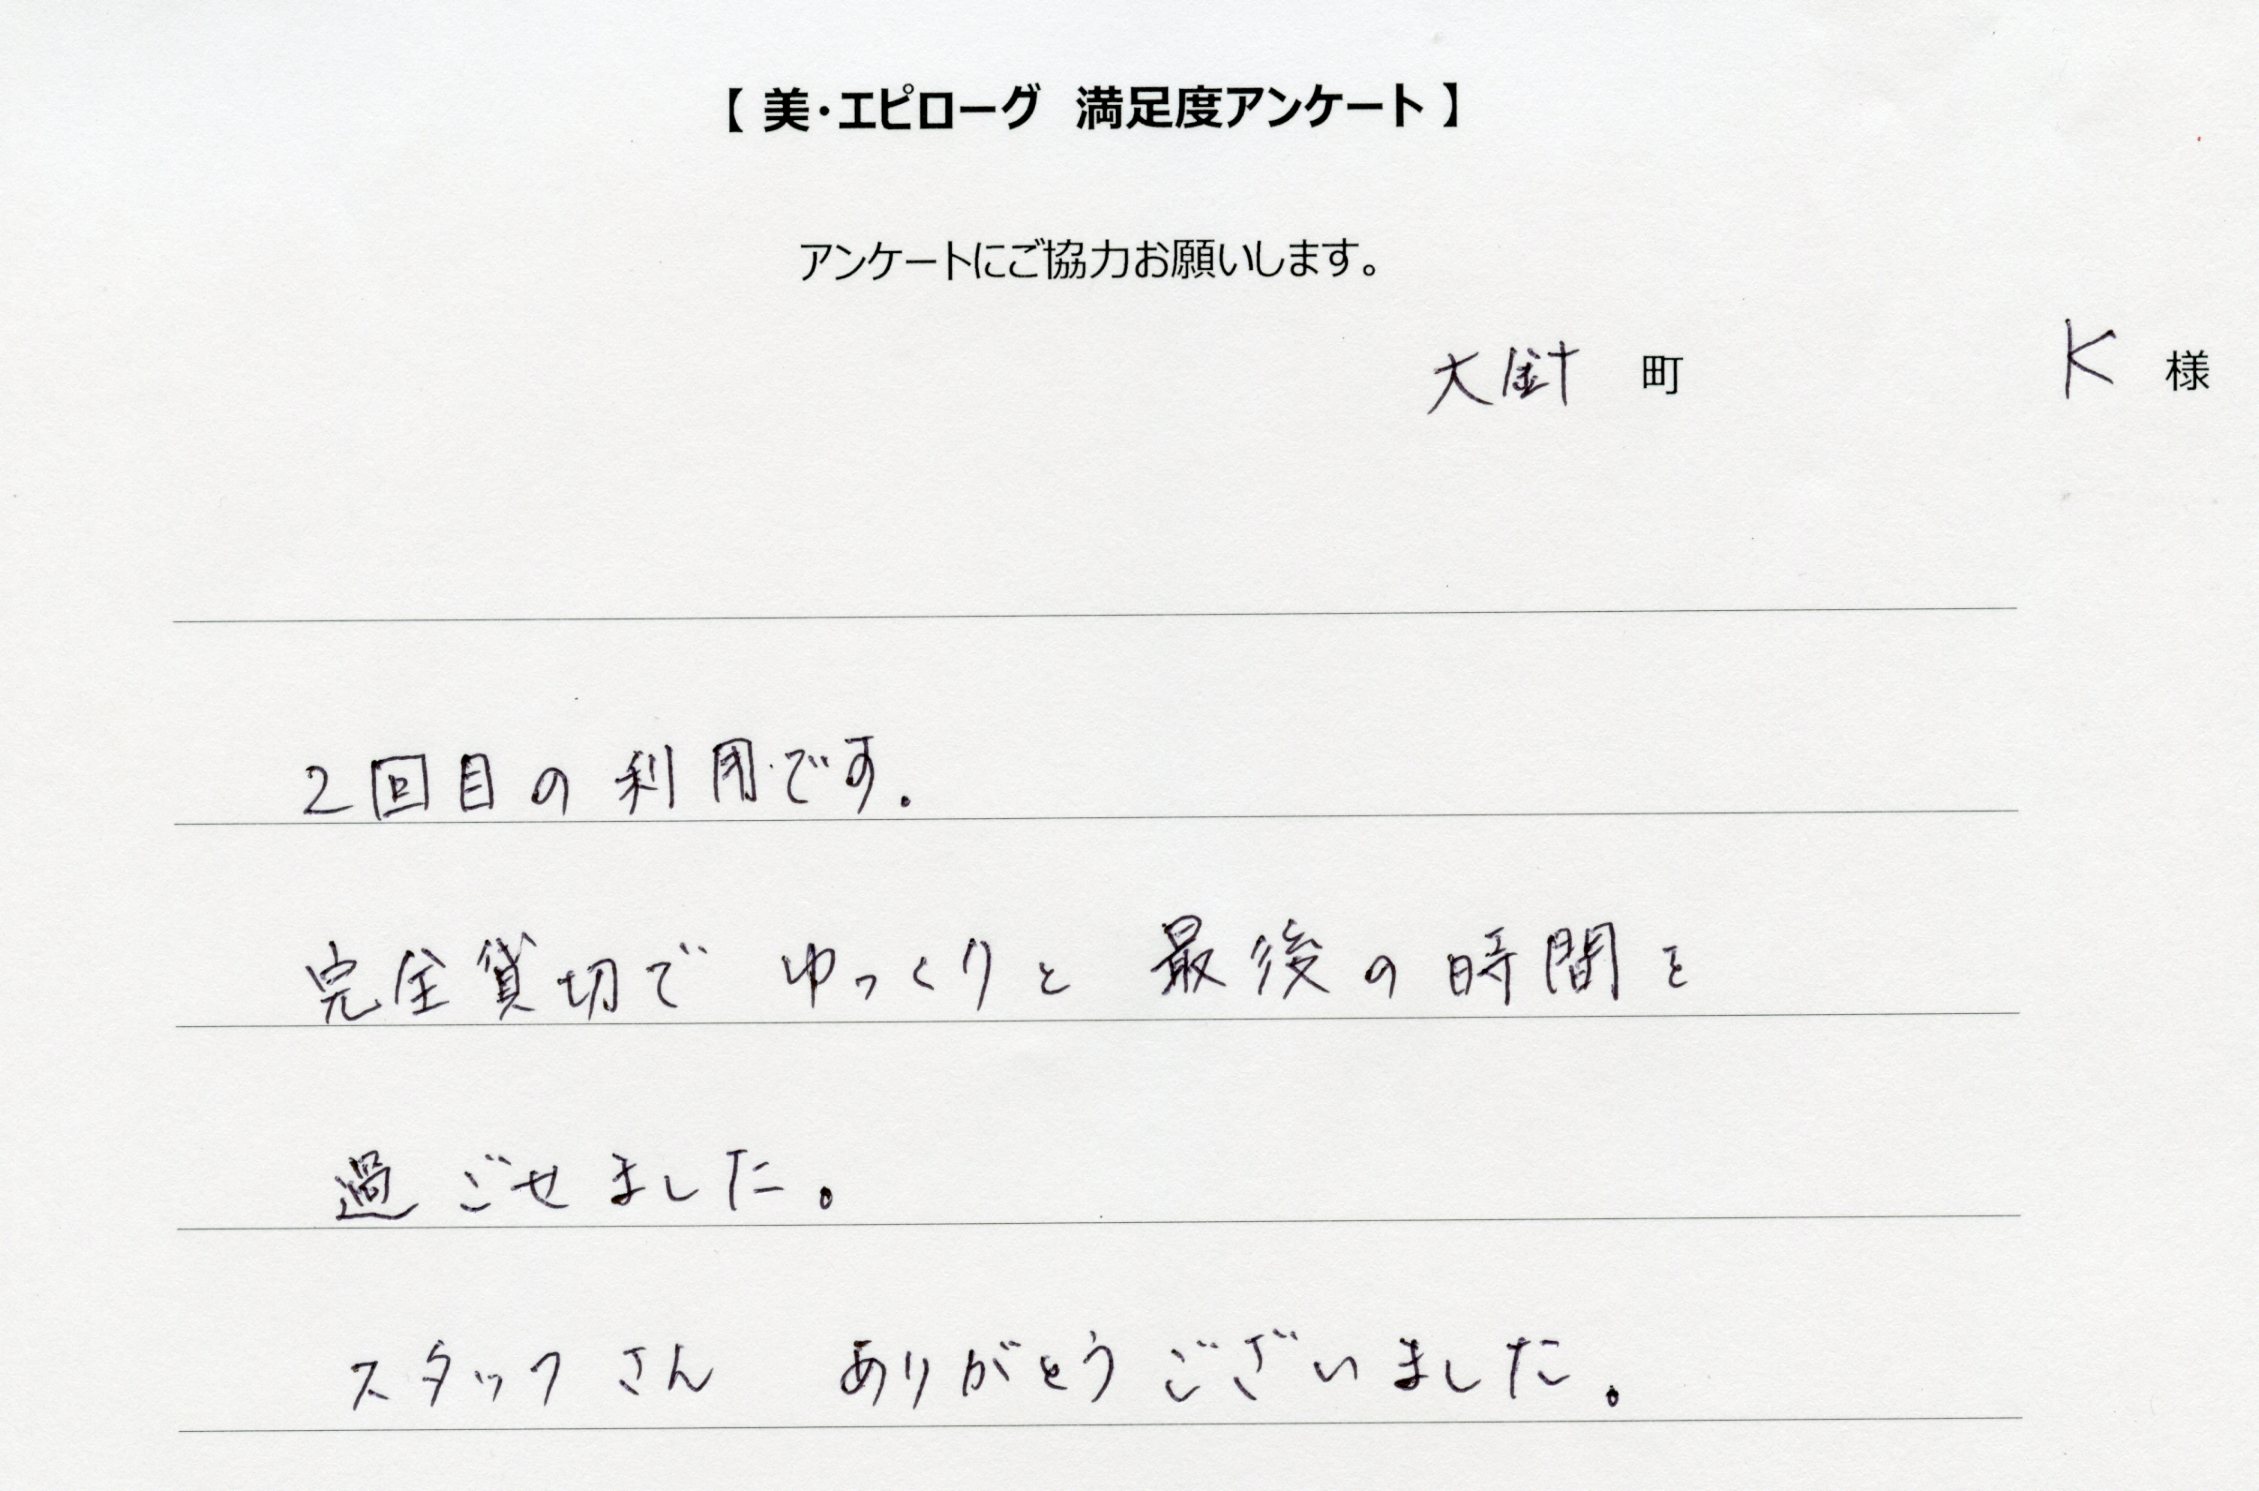 【 美・エピローグ 満足度アンケート 】
アンケートにご協力お願いします。
大針 町 K 様
2回目の利用です。
完全貸切で ゆっくりと 最後の時間を
過ごせました。
スタッフさん ありがとうございました。